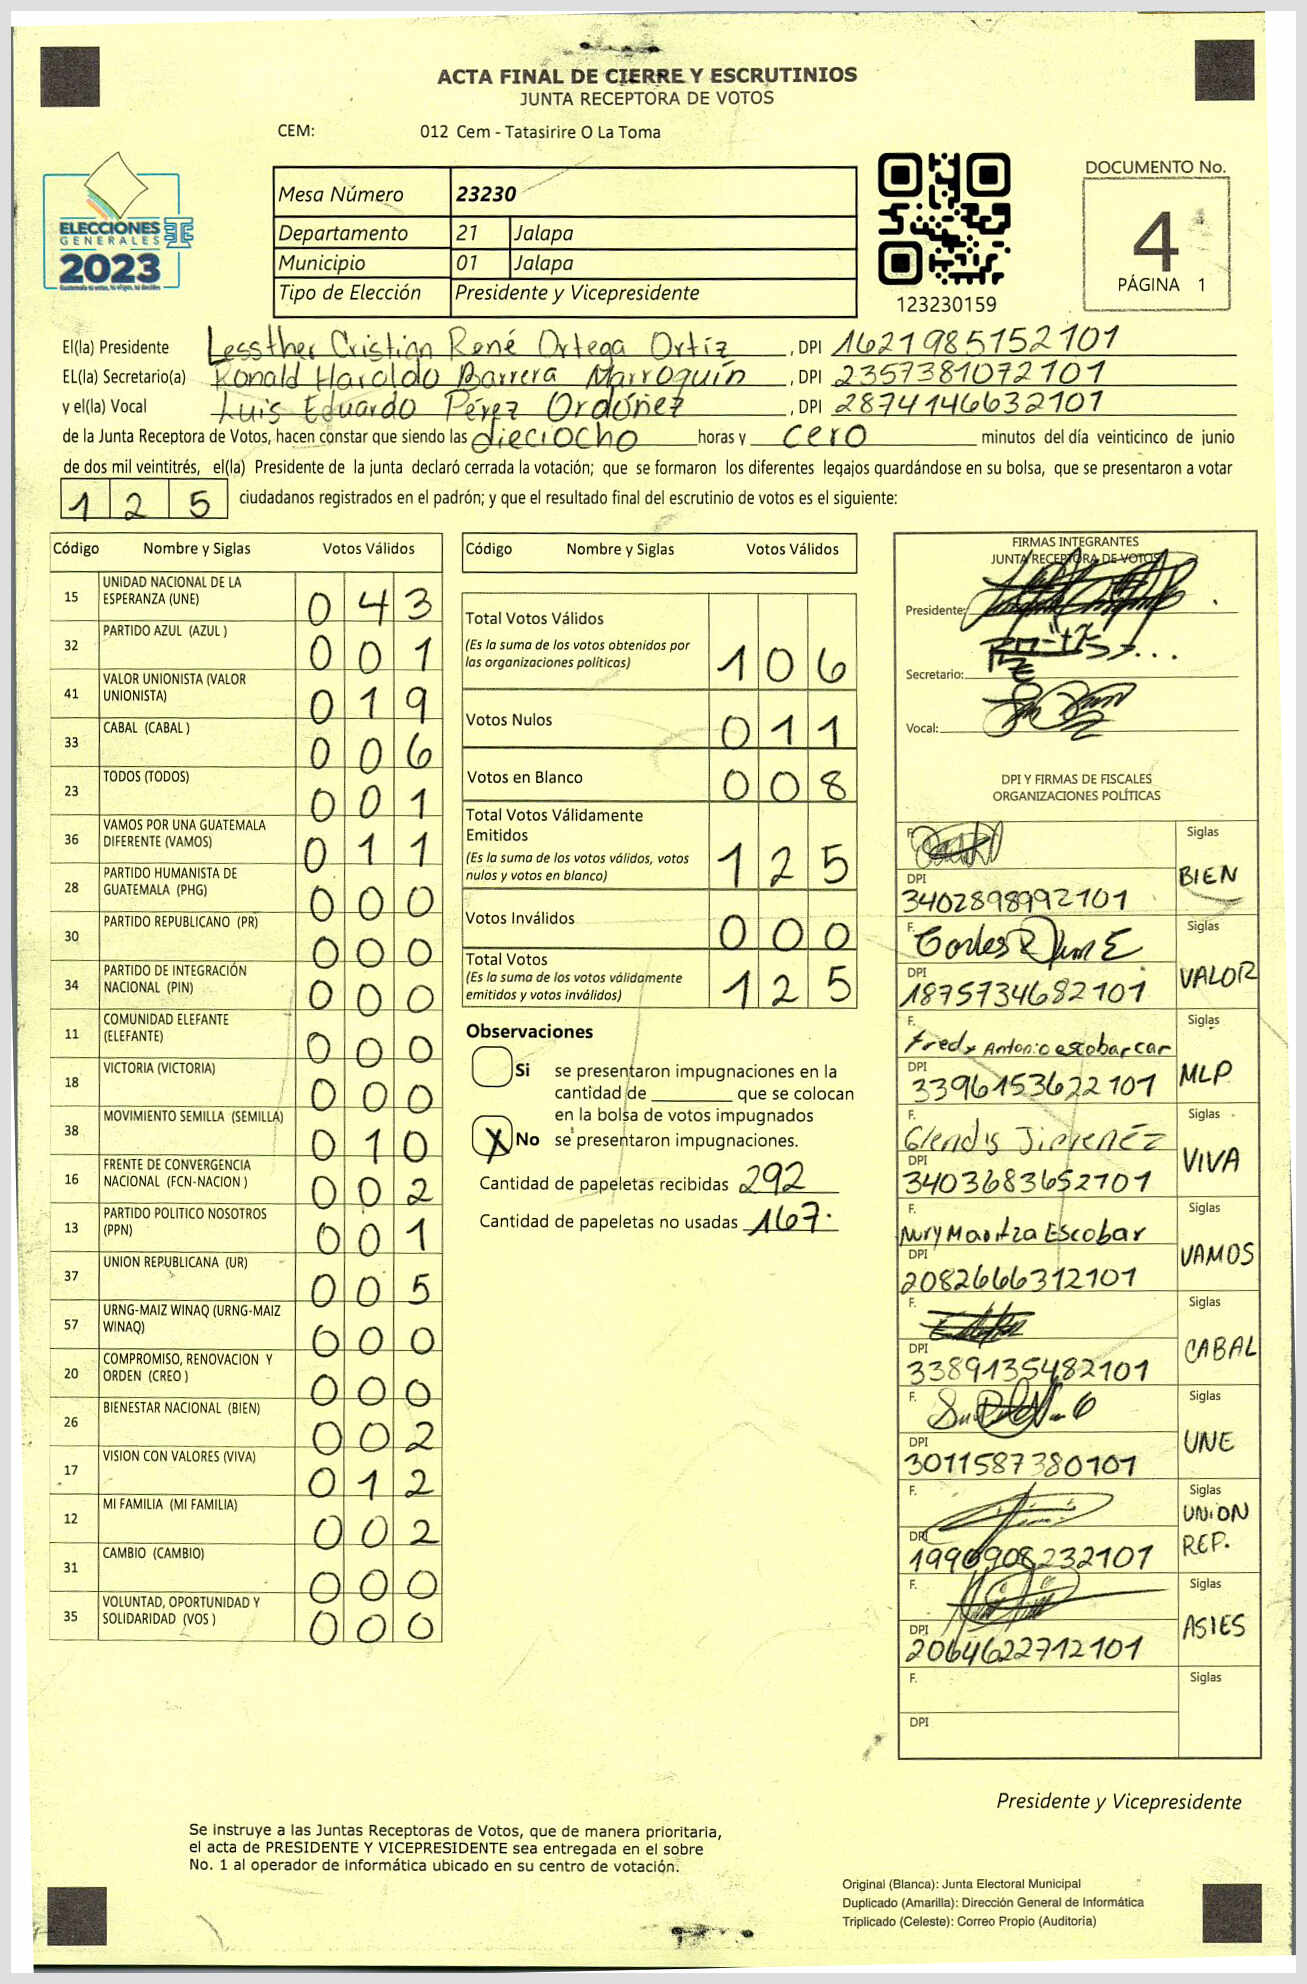 ACTA FINAL DE CIERRE Y ESCRUTINIOS
JUNTA RECEPTORA DE VOTOS
CEM: 012 Cem - Tatasirire O La Toma
ELECCIONES
GENERALES
2023
Mesa Número 23230
Departamento 21 Jalapa
Municipio 01 Jalapa
Tipo de Elección Presidente y Vicepresidente
123230159
DOCUMENTO No.
4
PÁGINA 1
El(la) Presidente Lessther Cristian René Ortega Ortíz , DPI 1621985152101
EL(la) Secretario(a) Ronald Haroldo Barrera Marroquín , DPI 2357381072101
y el(la) Vocal Luis Eduardo Pérez Ordóñez , DPI 2874146632101
de la Junta Receptora de Votos, hacen constar que siendo las dieciocho horas y cero minutos del día veinticinco de junio
de dos mil veintitrés, el(la) Presidente de la junta declaró cerrada la votación; que se formaron los diferentes legajos guardándose en su bolsa, que se presentaron a votar
1 2 5 ciudadanos registrados en el padrón; y que el resultado final del escrutinio de votos es el siguiente:
Código Nombre y Siglas Votos Válidos
15 UNIDAD NACIONAL DE LA ESPERANZA (UNE) 0 4 3
32 PARTIDO AZUL (AZUL ) 0 0 1
41 VALOR UNIONISTA (VALOR UNIONISTA) 0 1 9
33 CABAL (CABAL ) 0 0 6
23 TODOS (TODOS) 0 0 1
36 VAMOS POR UNA GUATEMALA DIFERENTE (VAMOS) 0 1 1
28 PARTIDO HUMANISTA DE GUATEMALA (PHG) 0 0 0
30 PARTIDO REPUBLICANO (PR) 0 0 0
34 PARTIDO DE INTEGRACIÓN NACIONAL (PIN) 0 0 0
11 COMUNIDAD ELEFANTE (ELEFANTE) 0 0 0
18 VICTORIA (VICTORIA) 0 0 0
38 MOVIMIENTO SEMILLA (SEMILLA) 0 1 0
16 FRENTE DE CONVERGENCIA NACIONAL (FCN-NACION ) 0 0 2
13 PARTIDO POLITICO NOSOTROS (PPN) 0 0 1
37 UNION REPUBLICANA (UR) 0 0 5
57 URNG-MAIZ WINAQ (URNG-MAIZ WINAQ) 0 0 0
20 COMPROMISO, RENOVACION Y ORDEN (CREO ) 0 0 0
26 BIENESTAR NACIONAL (BIEN) 0 0 2
17 VISION CON VALORES (VIVA) 0 1 2
12 MI FAMILIA (MI FAMILIA) 0 0 2
31 CAMBIO (CAMBIO) 0 0 0
35 VOLUNTAD, OPORTUNIDAD Y SOLIDARIDAD (VOS ) 0 0 0
Código Nombre y Siglas Votos Válidos
Total Votos Válidos
(Es la suma de los votos obtenidos por
las organizaciones políticas) 1 0 6
Votos Nulos 0 1 1
Votos en Blanco 0 0 8
Total Votos Válidamente
Emitidos
(Es la suma de los votos válidos, votos
nulos y votos en blanco) 1 2 5
Votos Inválidos 0 0 0
Total Votos
(Es la suma de los votos válidamente
emitidos y votos inválidos) 1 2 5
Observaciones
Si se presentaron impugnaciones en la
cantidad de ________ que se colocan
en la bolsa de votos impugnados
X No se presentaron impugnaciones.
Cantidad de papeletas recibidas 292
Cantidad de papeletas no usadas 167.
FIRMAS INTEGRANTES
JUNTA RECEPTORA DE VOTOS
Presidente:
Secretario:
Vocal:
DPI Y FIRMAS DE FISCALES
ORGANIZACIONES POLÍTICAS
F. Siglas
DPI BIEN
3402898992101
F. Carlos Siglas
DPI VALOR
1875734682101
F. Fredy Antonio escobar car Siglas
DPI MLP
3396153622101
F. Glendis Jimenéz Siglas
DPI VIVA
3403683652101
F. Nury Maritza Escobar Siglas
DPI VAMOS
2082666312101
F. Siglas
DPI CABAL
3389135482101
F. Siglas
DPI UNE
3011587380101
F. Siglas
DPI UNION REP.
1990908232101
F. Siglas
DPI ASIES
2064622712101
F. Siglas
DPI
Presidente y Vicepresidente
Se instruye a las Juntas Receptoras de Votos, que de manera prioritaria,
el acta de PRESIDENTE Y VICEPRESIDENTE sea entregada en el sobre
No. 1 al operador de informática ubicado en su centro de votación.
Original (Blanca): Junta Electoral Municipal
Duplicado (Amarilla): Dirección General de Informática
Triplicado (Celeste): Correo Propio (Auditoría)